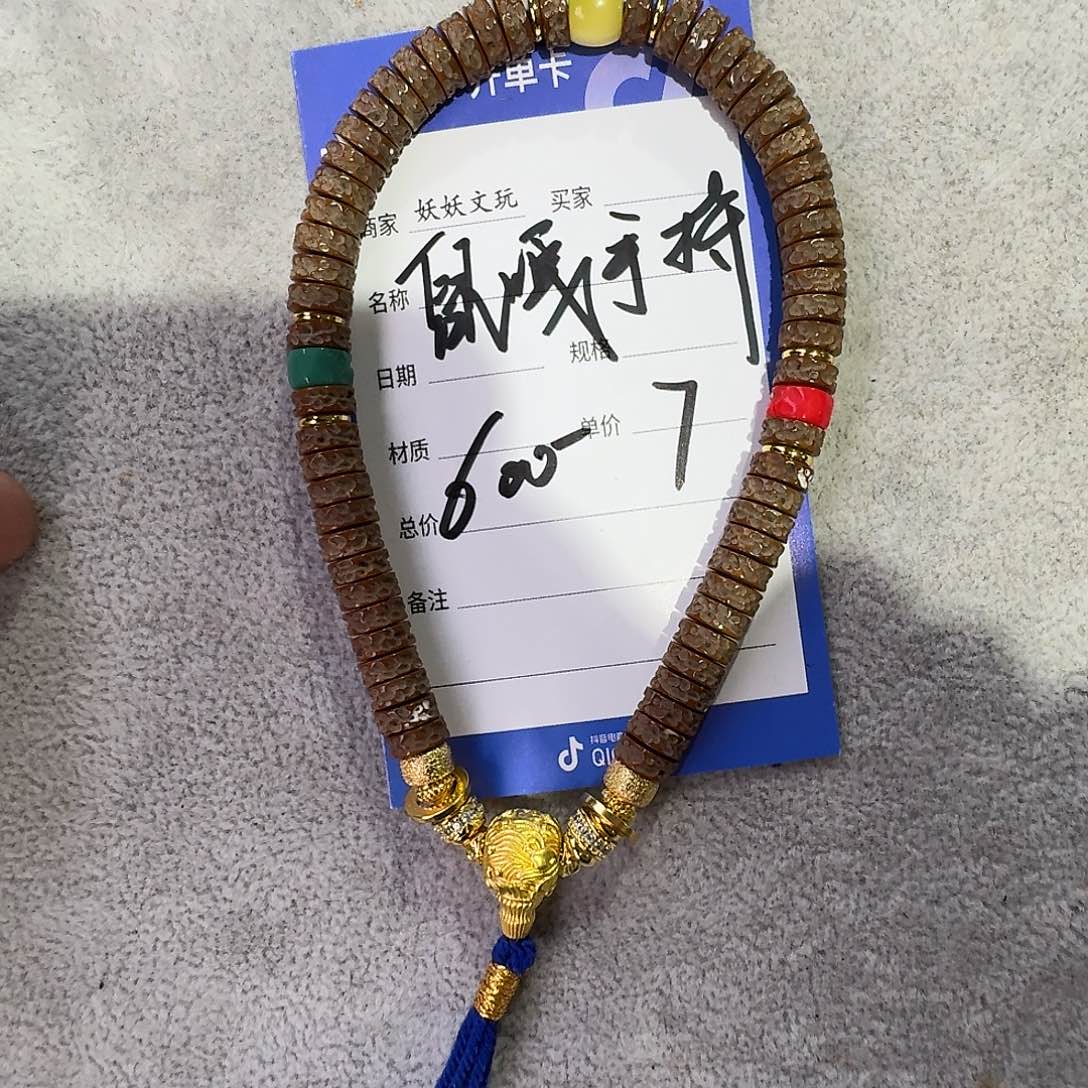 开单卡
商家 妖妖文玩 买家
名称 鼠嘎手持
日期 规格
材质 单价 7
总价 600-
备注
抖音电商
QI